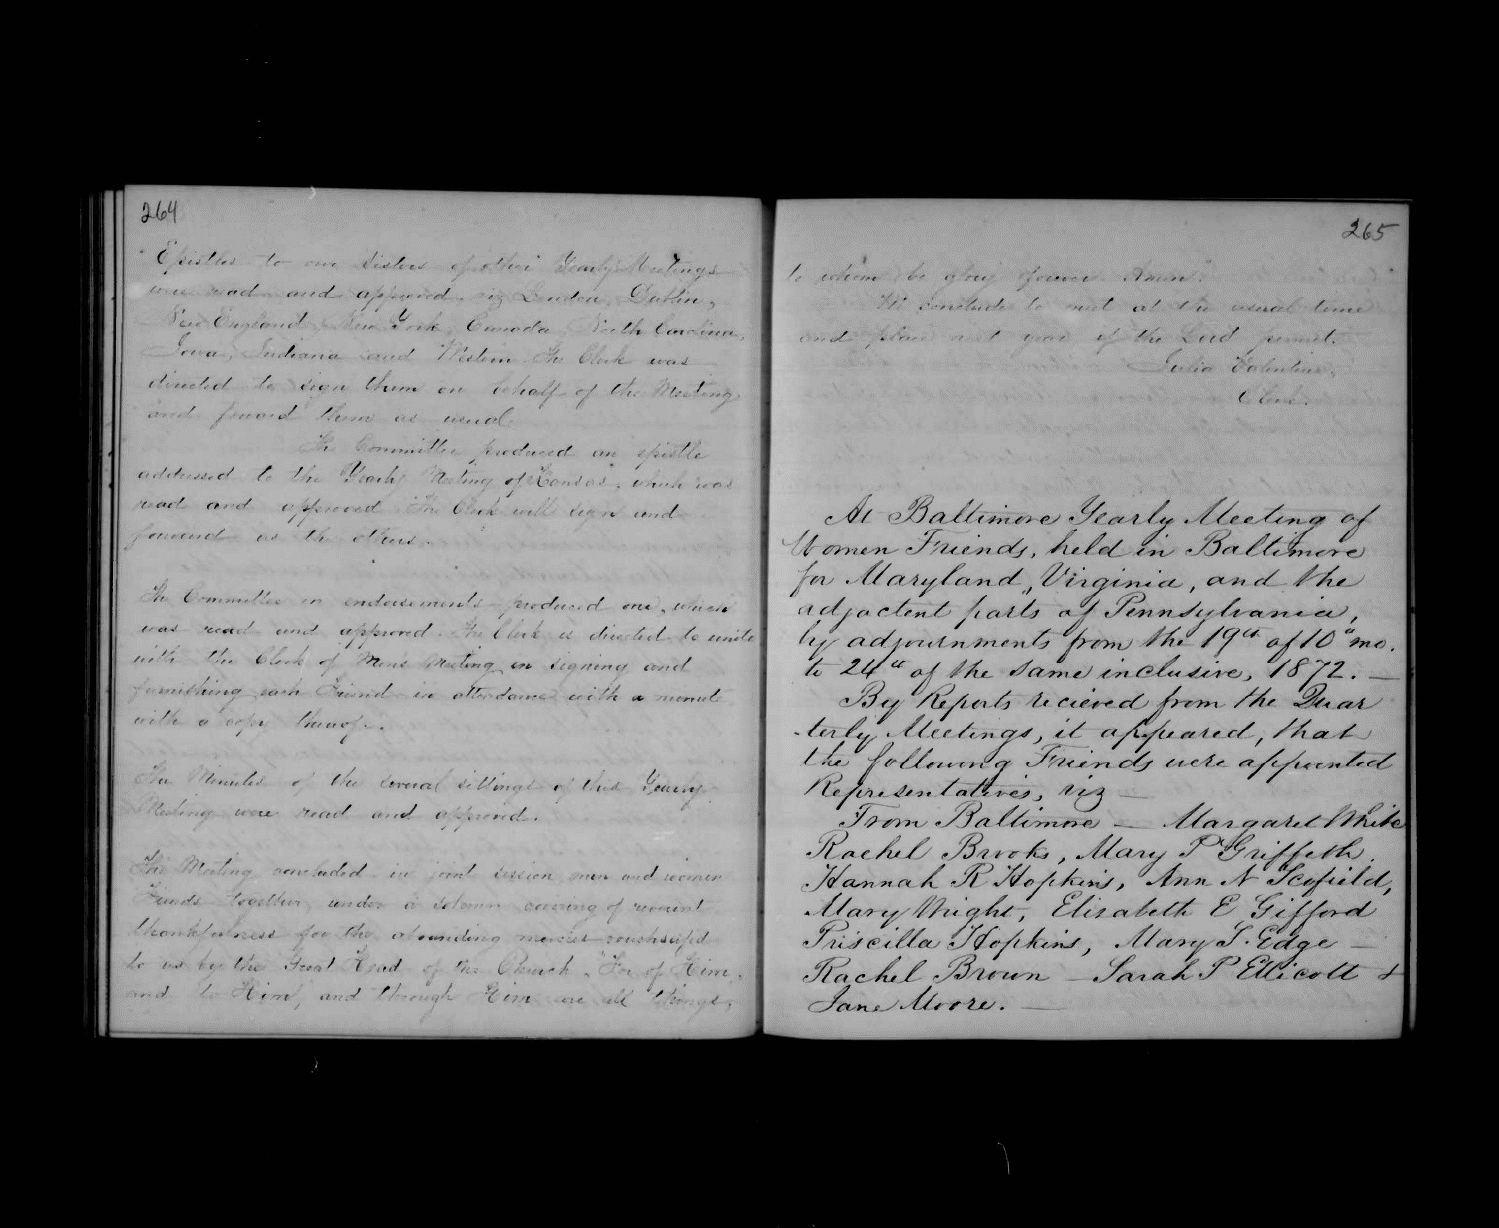 264
Epistles to our sisters of other Yearly Meetings
were read and approved, viz London, Dublin,
New England, New York, Canada, North Carolina,
Iowa, Indiana and Western. The Clerk was
directed to sign them on behalf of the Meeting
and foward them as usual.
The Committee produced an epistle
addressed to the Yearly Meeting of Kansas, which was
read and approved. The Clerk will sign and
forward as the others.
The Committee on endorsements produced one, which
was read and approved. The Clerk is directed to unite
with the Clerk of Men's Meeting in signing and
furnishing each Friend in attendance with a minute
with a copy thereof.
The Minutes of the several sittings of this Yearly
Meeting were read and approved.
The Meeting concluded in joint session, men and women
Friends together, under a solemn covering of reverent
thankfulness for the abounding mercies vouchsafed
to us by the Great Head of the Church, "For of Him,
and to Him, and through Him are all things,
265
to whom be glory forever Amen."
We conclude to meet at the usual time
and place next year if the Lord permit.
Julia Valentine,
Clerk.
At Baltimore Yearly Meeting of
Women Friends, held in Baltimore
for Maryland, Virginia, and the
adjactent parts of Pennsylvania,
by adjournments from the 19th of 10" mo.
to 24" of the same inclusive, 1872. —
By Reports recieved from the Quar
-terly Meetings, it appeared, that
the following Friends were appointed
Representatives, viz —
From Baltimore — Margaret White
Rachel Brooks, Mary P Griffeth.
Hannah R Hopkins, Ann N Scofield,
Mary Wright, Elizabeth E Gifford
Priscilla Hopkins, Mary S. Edge —
Rachel Brown — Sarah P Ellicott &
Jane Moore. —